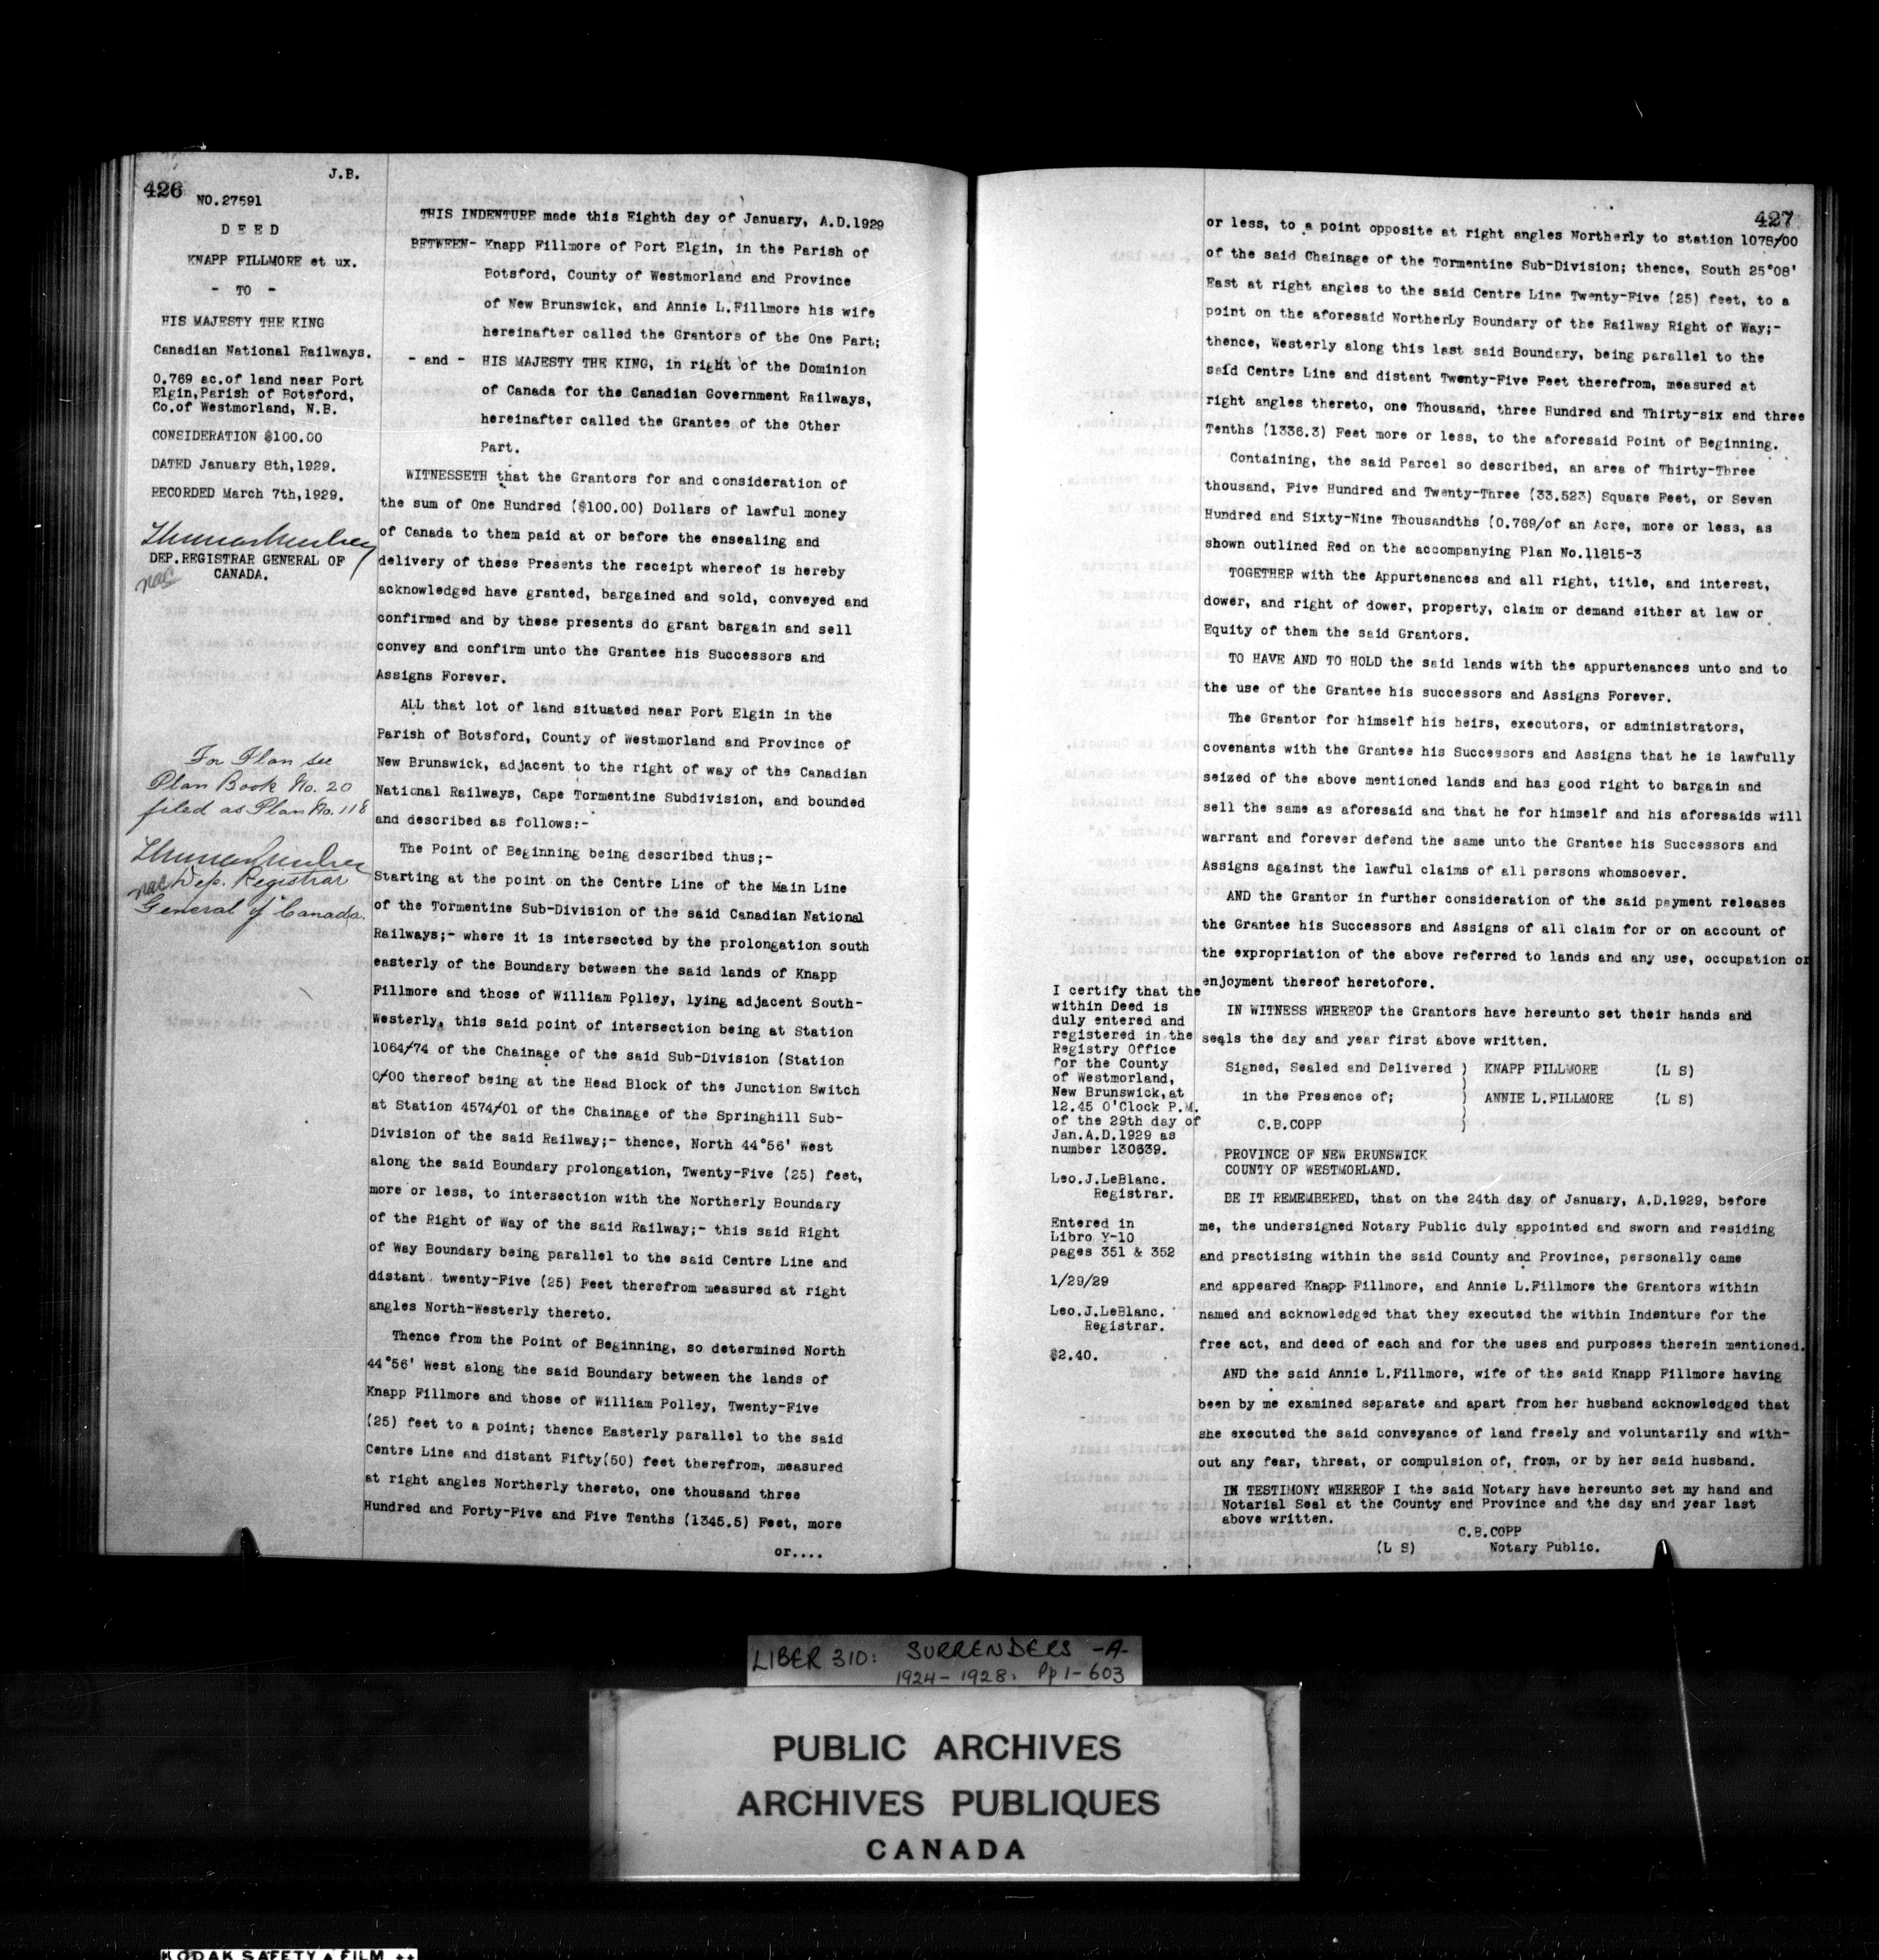 J.B.
426
NO.27591
D E E D
KNAPP FILLMORE et ux.
- TO -
HIS MAJESTY THE KING
Canadian National Railways.
0.769 ac.of land near Port
Elgin,Parish of Botsford,
Co.of Westmorland, N.B.
CONSIDERATION $100.00
DATED January 8th,1929.
RECORDED March 7th,1929.
DEP.REGISTRAR GENERAL OF
CANADA.
For Plan see
Plan Book No. 20
filed as Plan No. 118
Dep. Registrar
General of Canada.
THIS INDENTURE made this Eighth day of January, A.D.1929
BETWEEN- Knapp Fillmore of Port Elgin, in the Parish of
Botsford, County of Westmorland and Province
of New Brunswick, and Annie L.Fillmore his wife
hereinafter called the Grantors of the One Part;
- and - HIS MAJESTY THE KING, in right of the Dominion
of Canada for the Canadian Government Railways,
hereinafter called the Grantee of the Other
Part.
WITNESSETH that the Grantors for and consideration of
the sum of One Hundred ($100.00) Dollars of lawful money
of Canada to them paid at or before the ensealing and
delivery of these Presents the receipt whereof is hereby
acknowledged have granted, bargained and sold, conveyed and
confirmed and by these presents do grant bargain and sell
convey and confirm unto the Grantee his Successors and
Assigns Forever.
ALL that lot of land situated near Port Elgin in the
Parish of Botsford, County of Westmorland and Province of
New Brunswick, adjacent to the right of way of the Canadian
National Railways, Cape Tormentine Subdivision, and bounded
and described as follows:-
The Point of Beginning being described thus;-
Starting at the point on the Centre Line of the Main Line
of the Tormentine Sub-Division of the said Canadian National
Railways;- where it is intersected by the prolongation south
easterly of the Boundary between the said lands of Knapp
Fillmore and those of William Polley, lying adjacent South-
Westerly, this said point of intersection being at Station
1064/74 of the Chainage of the said Sub-Division (Station
0/00 thereof being at the Head Block of the Junction Switch
at Station 4574/01 of the Chainage of the Springhill Sub-
Division of the said Railway;- thence, North 44°56' West
along the said Boundary prolongation, Twenty-Five (25) feet,
more or less, to intersection with the Northerly Boundary
of the Right of Way of the said Railway;- this said Right
of Way Boundary being parallel to the said Centre Line and
distant twenty-Five (25) Feet therefrom measured at right
angles North-Westerly thereto.
Thence from the Point of Beginning, so determined North
44°56' West along the said Boundary between the lands of
Knapp Fillmore and those of William Polley, Twenty-Five
(25) feet to a point; thence Easterly parallel to the said
Centre Line and distant Fifty(50) feet therefrom, measured
at right angles Northerly thereto, one thousand three
Hundred and Forty-Five and Five Tenths (1345.5) Feet, more
or....
427
or less, to a point opposite at right angles Northerly to station 1078/00
of the said Chainage of the Tormentine Sub-Division; thence, South 25°08'
East at right angles to the said Centre Line Twenty-Five (25) feet, to a
point on the aforesaid NortherLy Boundary of the Railway Right of Way;-
thence, Westerly along this last said Boundary, being parallel to the
said Centre Line and distant Twenty-Five Feet therefrom, measured at
right angles thereto, one Thousand, three Hundred and Thirty-six and three
Tenths (1336.3) Feet more or less, to the aforesaid Point of Beginning.
Containing, the said Parcel so described, an area of Thirty-Three
thousand, Five Hundred and Twenty-Three (33.523) Square Feet, or Seven
Hundred and Sixty-Nine Thousandths (0.769/of an Acre, more or less, as
shown outlined Red on the accompanying Plan No.11815-3
TOGETHER with the Appurtenances and all right, title, and interest,
dower, and right of dower, property, claim or demand either at law or
Equity of them the said Grantors.
TO HAVE AND TO HOLD the said lands with the appurtenances unto and to
the use of the Grantee his successors and Assigns Forever.
The Grantor for himself his heirs, executors, or administrators,
covenants with the Grantee his Successors and Assigns that he is lawfully
seized of the above mentioned lands and has good right to bargain and
sell the same as aforesaid and that he for himself and his aforesaids will
warrant and forever defend the same unto the Grantee his Successors and
Assigns against the lawful claims of all persons whomsoever.
AND the Grantor in further consideration of the said payment releases
the Grantee his Successors and Assigns of all claim for or on account of
the expropriation of the above referred to lands and any use, occupation or
enjoyment thereof heretofore.
IN WITNESS WHEREOF the Grantors have hereunto set their hands and
seals the day and year first above written.
Signed, Sealed and Delivered ) KNAPP FILLMORE (L S)
in the Presence of; ) ANNIE L.FILLMORE (L S)
C.B.COPP )
PROVINCE OF NEW BRUNSWICK
COUNTY OF WESTMORLAND.
BE IT REMEMBERED, that on the 24th day of January, A.D.1929, before
me, the undersigned Notary Public duly appointed and sworn and residing
and practising within the said County and Province, personally came
and appeared Knapp Fillmore, and Annie L.Fillmore the Grantors within
named and acknowledged that they executed the within Indenture for the
free act, and deed of each and for the uses and purposes therein mentioned.
AND the said Annie L.Fillmore, wife of the said Knapp Fillmore having
been by me examined separate and apart from her husband acknowledged that
she executed the said conveyance of land freely and voluntarily and with-
out any fear, threat, or compulsion of, from, or by her said husband.
IN TESTIMONY WHEREOF I the said Notary have hereunto set my hand and
Notarial Seal at the County and Province and the day and year last
above written.
C.B.COPP
(L S) Notary Public.
I certify that the
within Deed is
duly entered and
registered in the
Registry Office
for the County
of Westmorland,
New Brunswick,at
12.45 O'Clock P.M.
of the 29th day of
Jan.A.D.1929 as
number 130639.
Leo.J.LeBlanc.
Registrar.
Entered in
Libro Y-10
pages 351 & 352
1/29/29
Leo.J.LeBlanc.
Registrar.
$2.40.
LIBER 310: SURRENDERS -A-
1924-1928. Pp 1-603
PUBLIC ARCHIVES
ARCHIVES PUBLIQUES
CANADA
KODAK SAFETY FILM